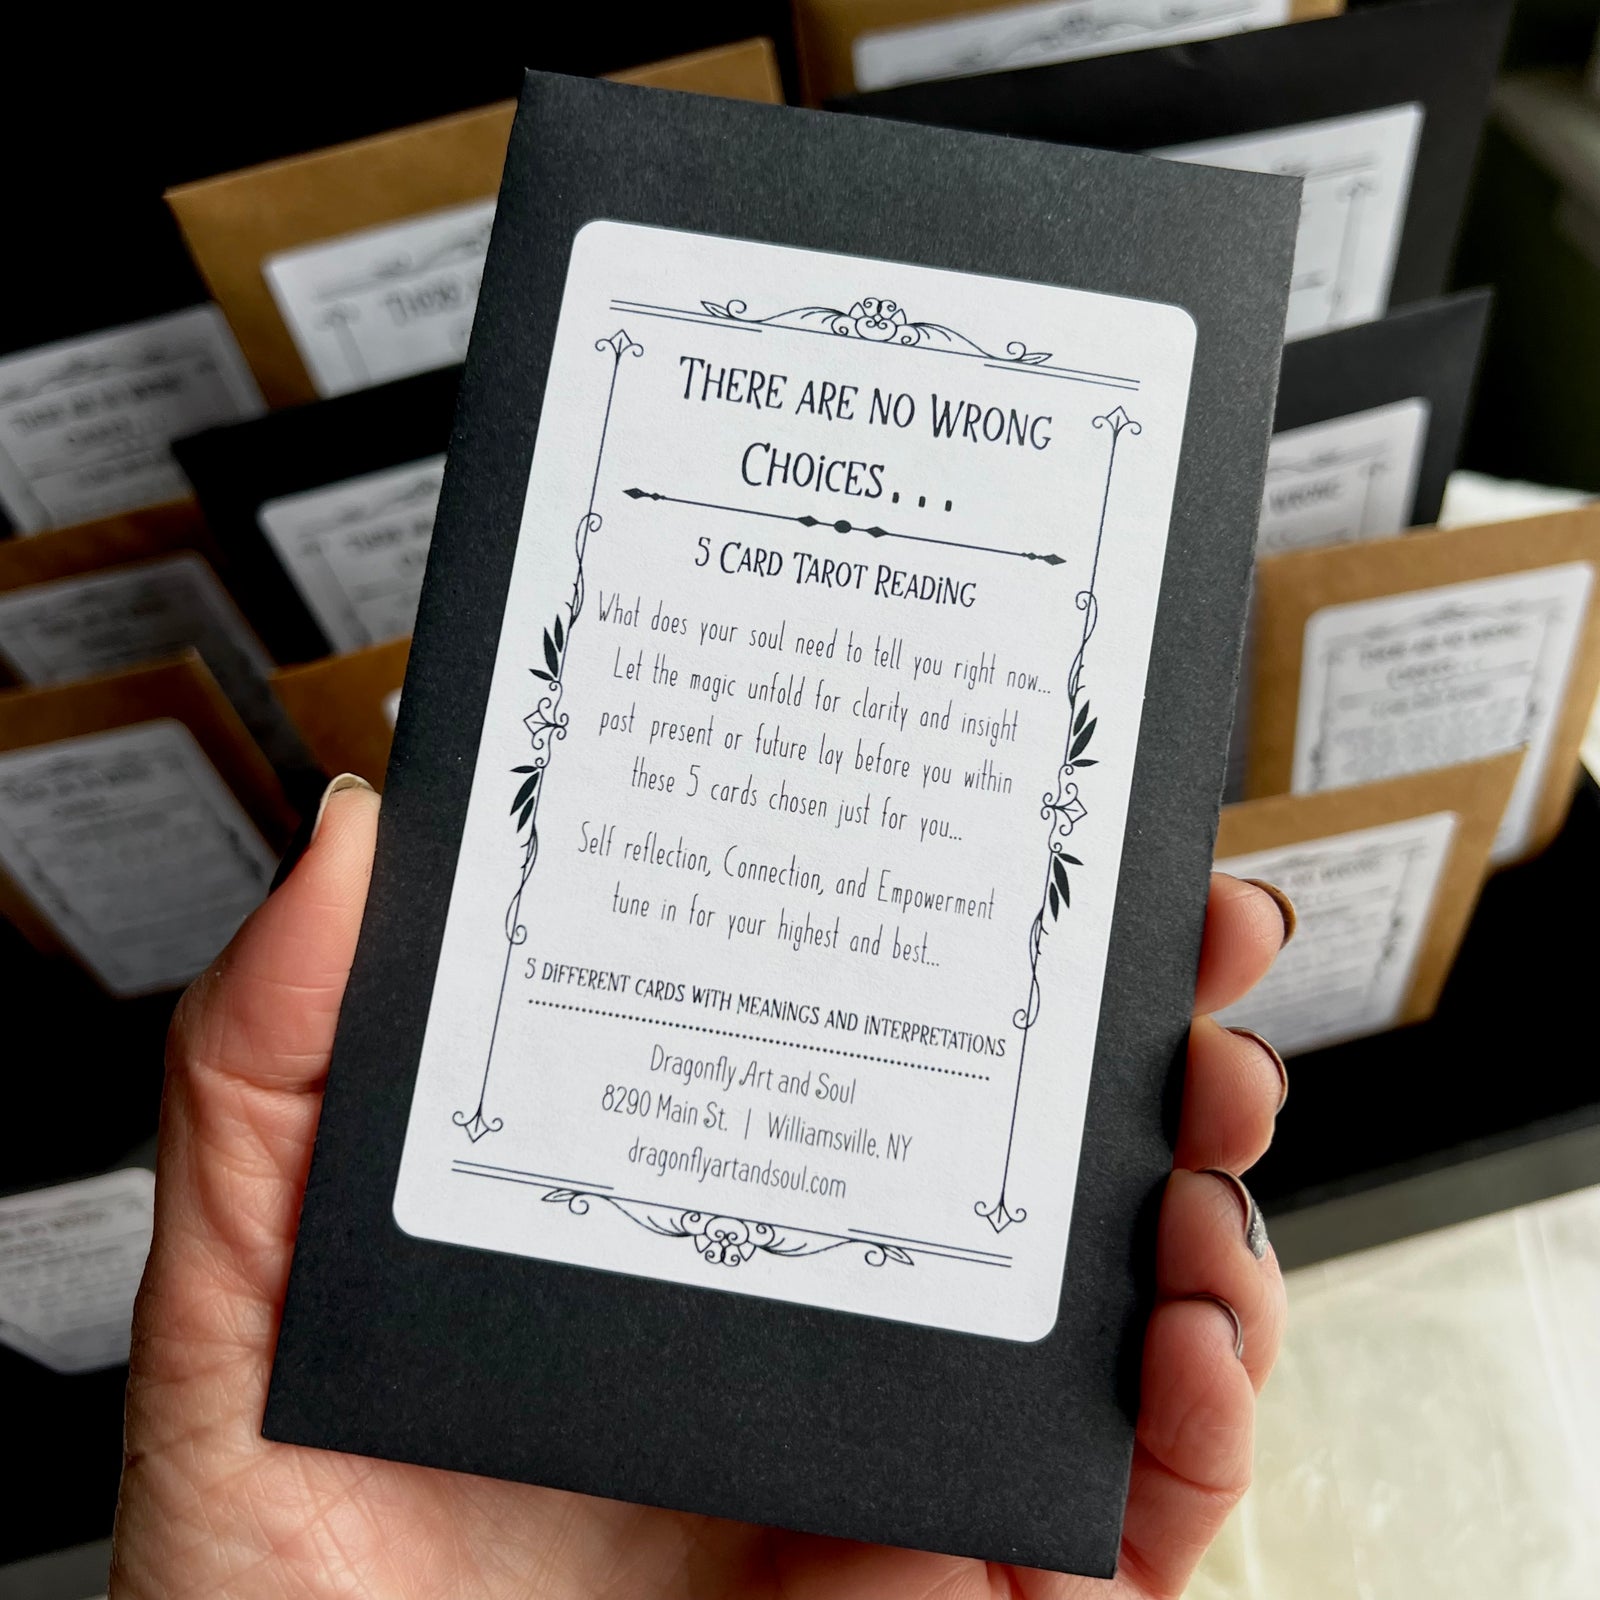 There are no Wrong
Choices...
5 Card Tarot Reading
What does your soul need to tell you right now...
Let the magic unfold for clarity and insight
past present or future lay before you within
these 5 cards chosen just for you...
Self reflection, Connection, and Empowerment
tune in for your highest and best...
5 different cards with meanings and interpretations
Dragonfly Art and Soul
8290 Main St. | Williamsville, NY
dragonflyartandsoul.com